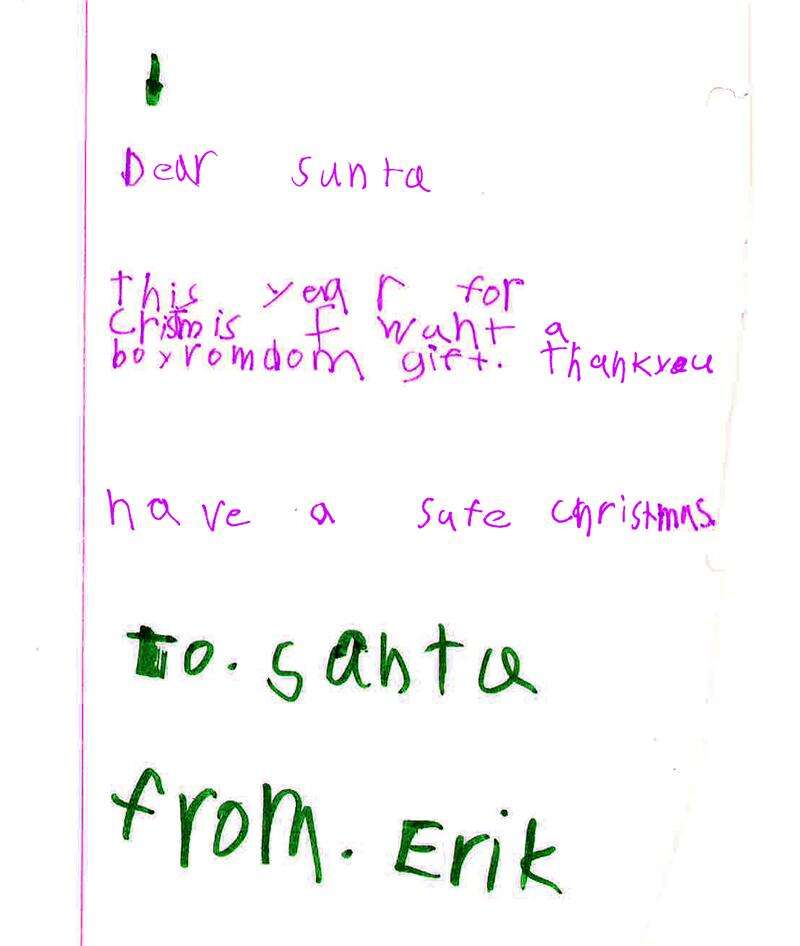 Dear santa
this year for
Cristmis I want a
boy romdom gift. Thankyou
have a safe christmas.
to. santa
from. Erik